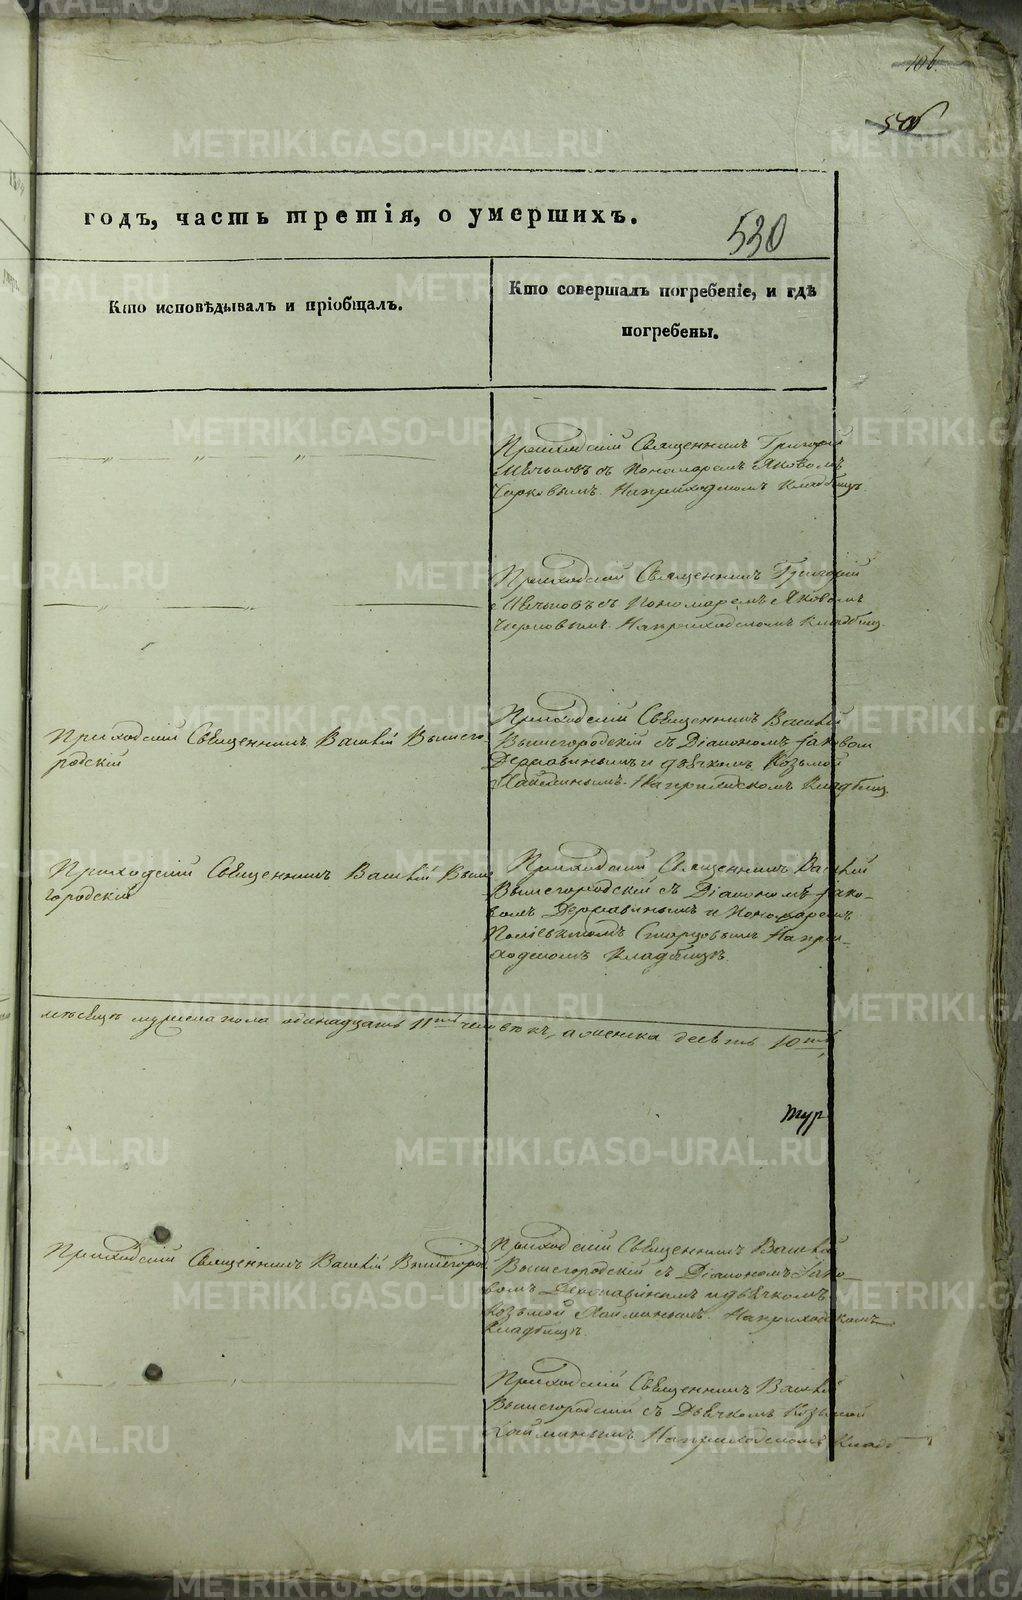 106.
50
годъ, часть третія, о умершихъ.
530
Кто исповѣдывалъ и пріобщалъ.
Кто совершалъ погребеніе, и гдѣ
погребены.
Приходскій Священникъ Григорій
съ Пономаремъ Яковомъ
На приходскомъ Кладбищѣ
Приходскій Священникъ Григорій
съ Пономаремъ Яковомъ
На приходскомъ Кладбищ.
Приходскій Священникъ Василій Вышего
родскій
Приходскій Священникъ Василій
Вышегородскій съ Діакономъ Іаковом
Державинымъ и дьячкомъ Козьмой
На приходскомъ Кладбищ.
Приходскій Священникъ Василій Выше
городскій
Приходскій Священникъ Василій
Вышегородскій съ Діакономъ Іако-
вомъ Державинымъ и Пономаремъ
На при-
ходскомъ Кладбищѣ.
мѣсяцѣ мужеска пола одинадцать 11ть человѣкъ, а женска 10ть
Приходскій Священникъ Василій Вышегород
Приходскій Священникъ Василій
Вышегородскій съ Діакономъ Іако-
вомъ Державинымъ и дьячкомъ
Козьмой На приходскомъ
Кладбищѣ.
Приходскій Священникъ Василій
Вышегородскій съ Дьячкомъ Козьмой
На приходскомъ Кладб.
METRIKI.GASO-URAL.RU